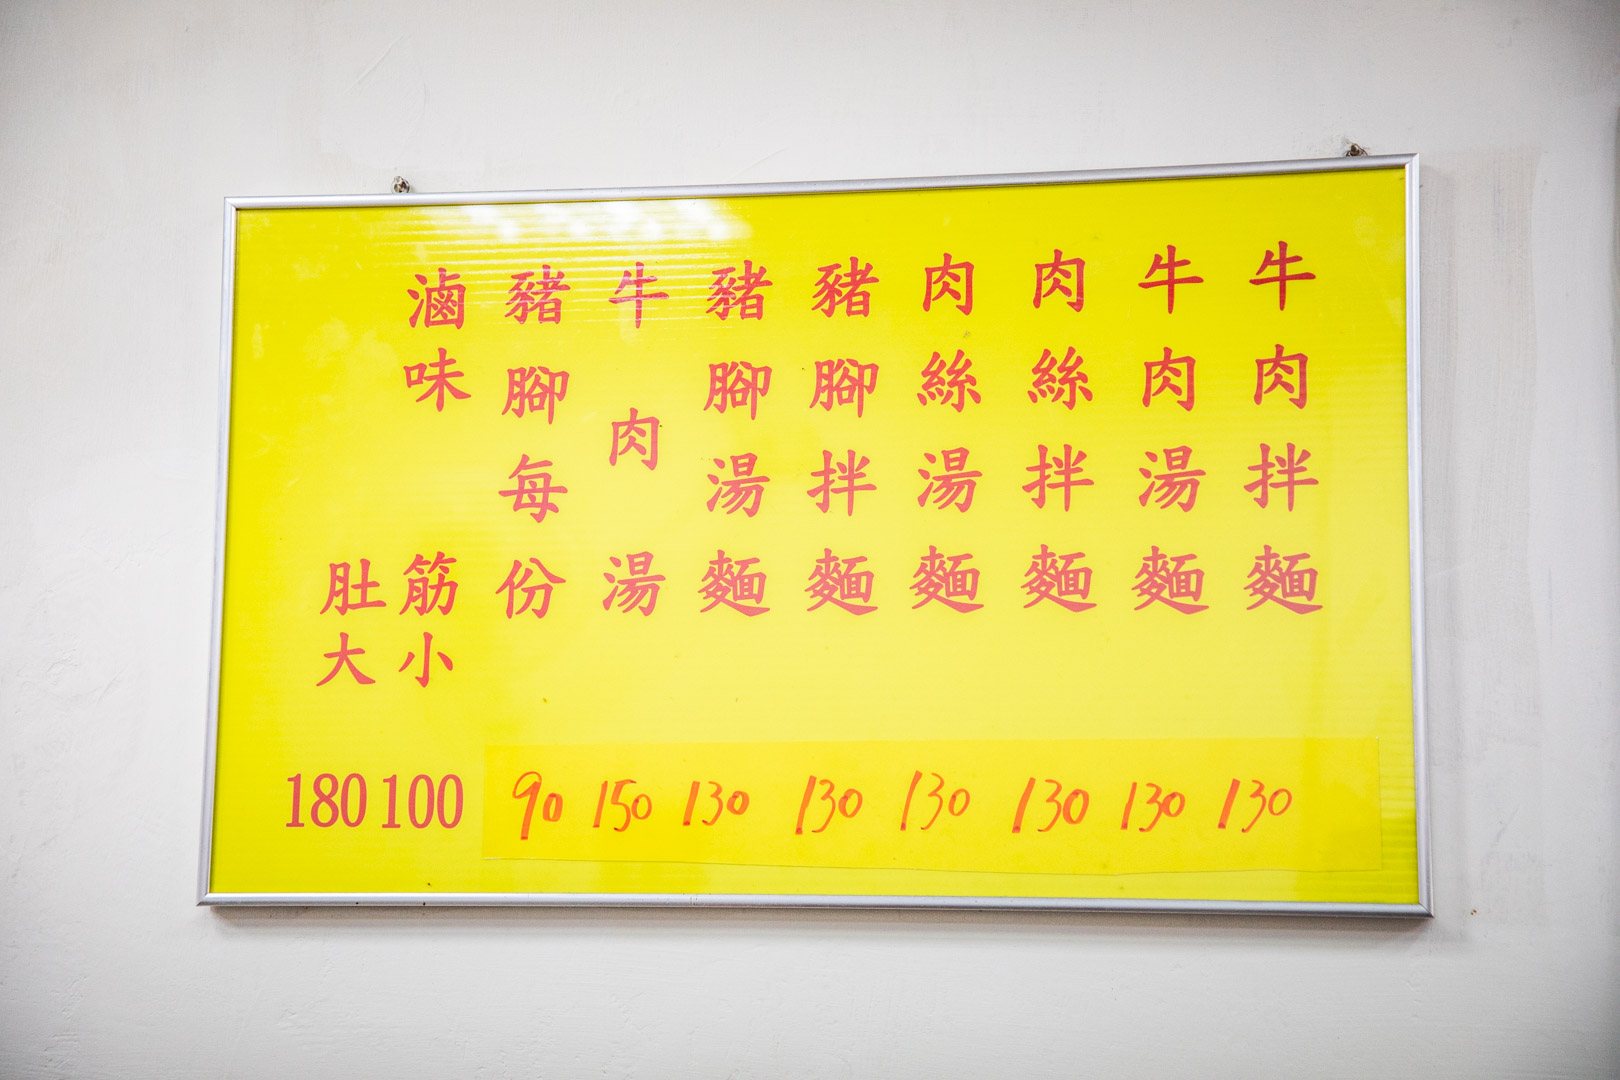 牛肉拌麵 130
牛肉湯麵 130
肉絲拌麵 130
肉絲湯麵 130
豬腳拌麵 130
豬腳湯麵 130
牛肉湯 150
豬腳每份 90
滷味
筋小 100
肚大 180